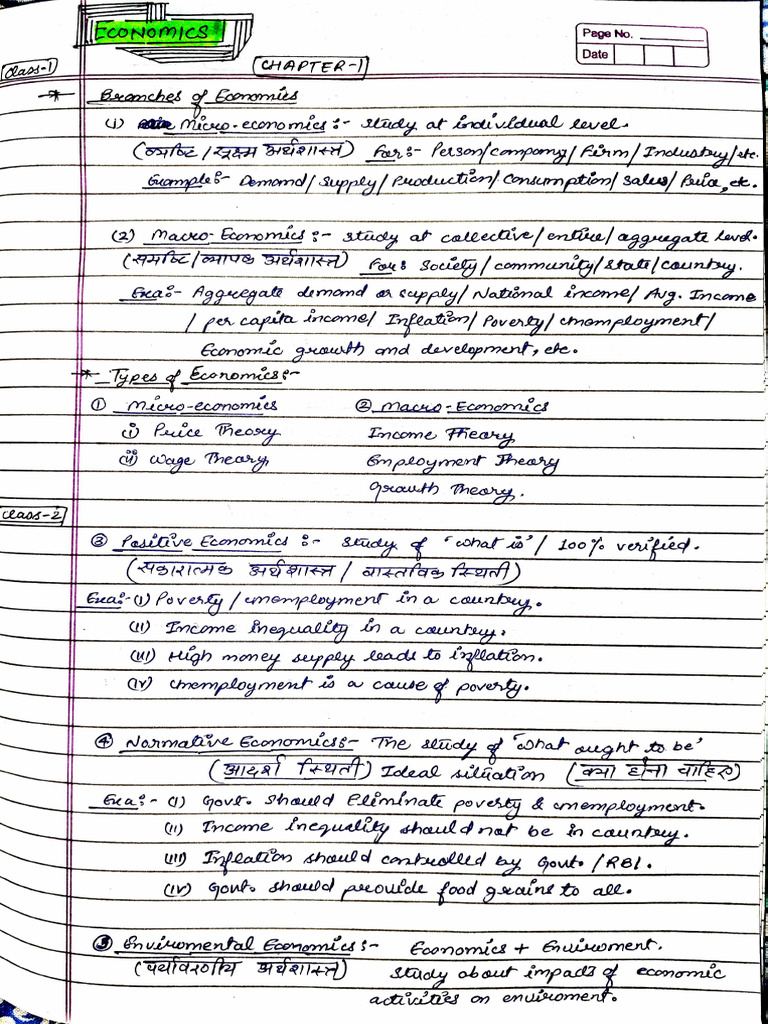 ECONOMICS
Page No.
Date
Class-1
CHAPTER-1
* Branches of Economics
(1) Micro-economics:- Study at individual level.
(व्यष्टि/सूक्ष्म अर्थशास्त्र) For:- Person/company/Firm/Industry/etc.
Example:- Demand/Supply/Production/Consumption/Sales/Price, etc.
(2) Macro-Economics:- Study at collective/entire/aggregate level.
(समष्टि/व्यापक अर्थशास्त्र) For: Society/community/state/country.
Exa:- Aggregate demand or supply/National income/Avg. Income
/per capita income/ Inflation/Poverty/unemployment/
Economic growth and development, etc.
* Types of Economics:-
① Micro-economics ② Macro-Economics
(i) Price Theory Income Theory
(ii) Wage Theory Employment Theory
Growth Theory.
Class-2
③ Positive Economics:- Study of 'what is'/ 100% verified.
(सकारात्मक अर्थशास्त्र / वास्तविक स्थिती)
Exa:- (I) Poverty/unemployment in a country.
(II) Income inequality in a country.
(III) High money supply leads to inflation.
(IV) Unemployment is a cause of poverty.
④ Normative Economics:- The study of 'what ought to be'
(आदर्श स्थिती) Ideal situation (क्या होना चाहिए)
Exa:- (I) Govt. should Eliminate poverty & unemployment.
(II) Income inequality should not be in country.
(III) Inflation should controlled by Govt./RBI.
(IV) Govt. should provide food grains to all.
⑤ Enviromental Economics:- Economics + Enviroment.
(पर्यावरणीय अर्थशास्त्र) Study about impads of economic
activities on enviroment.